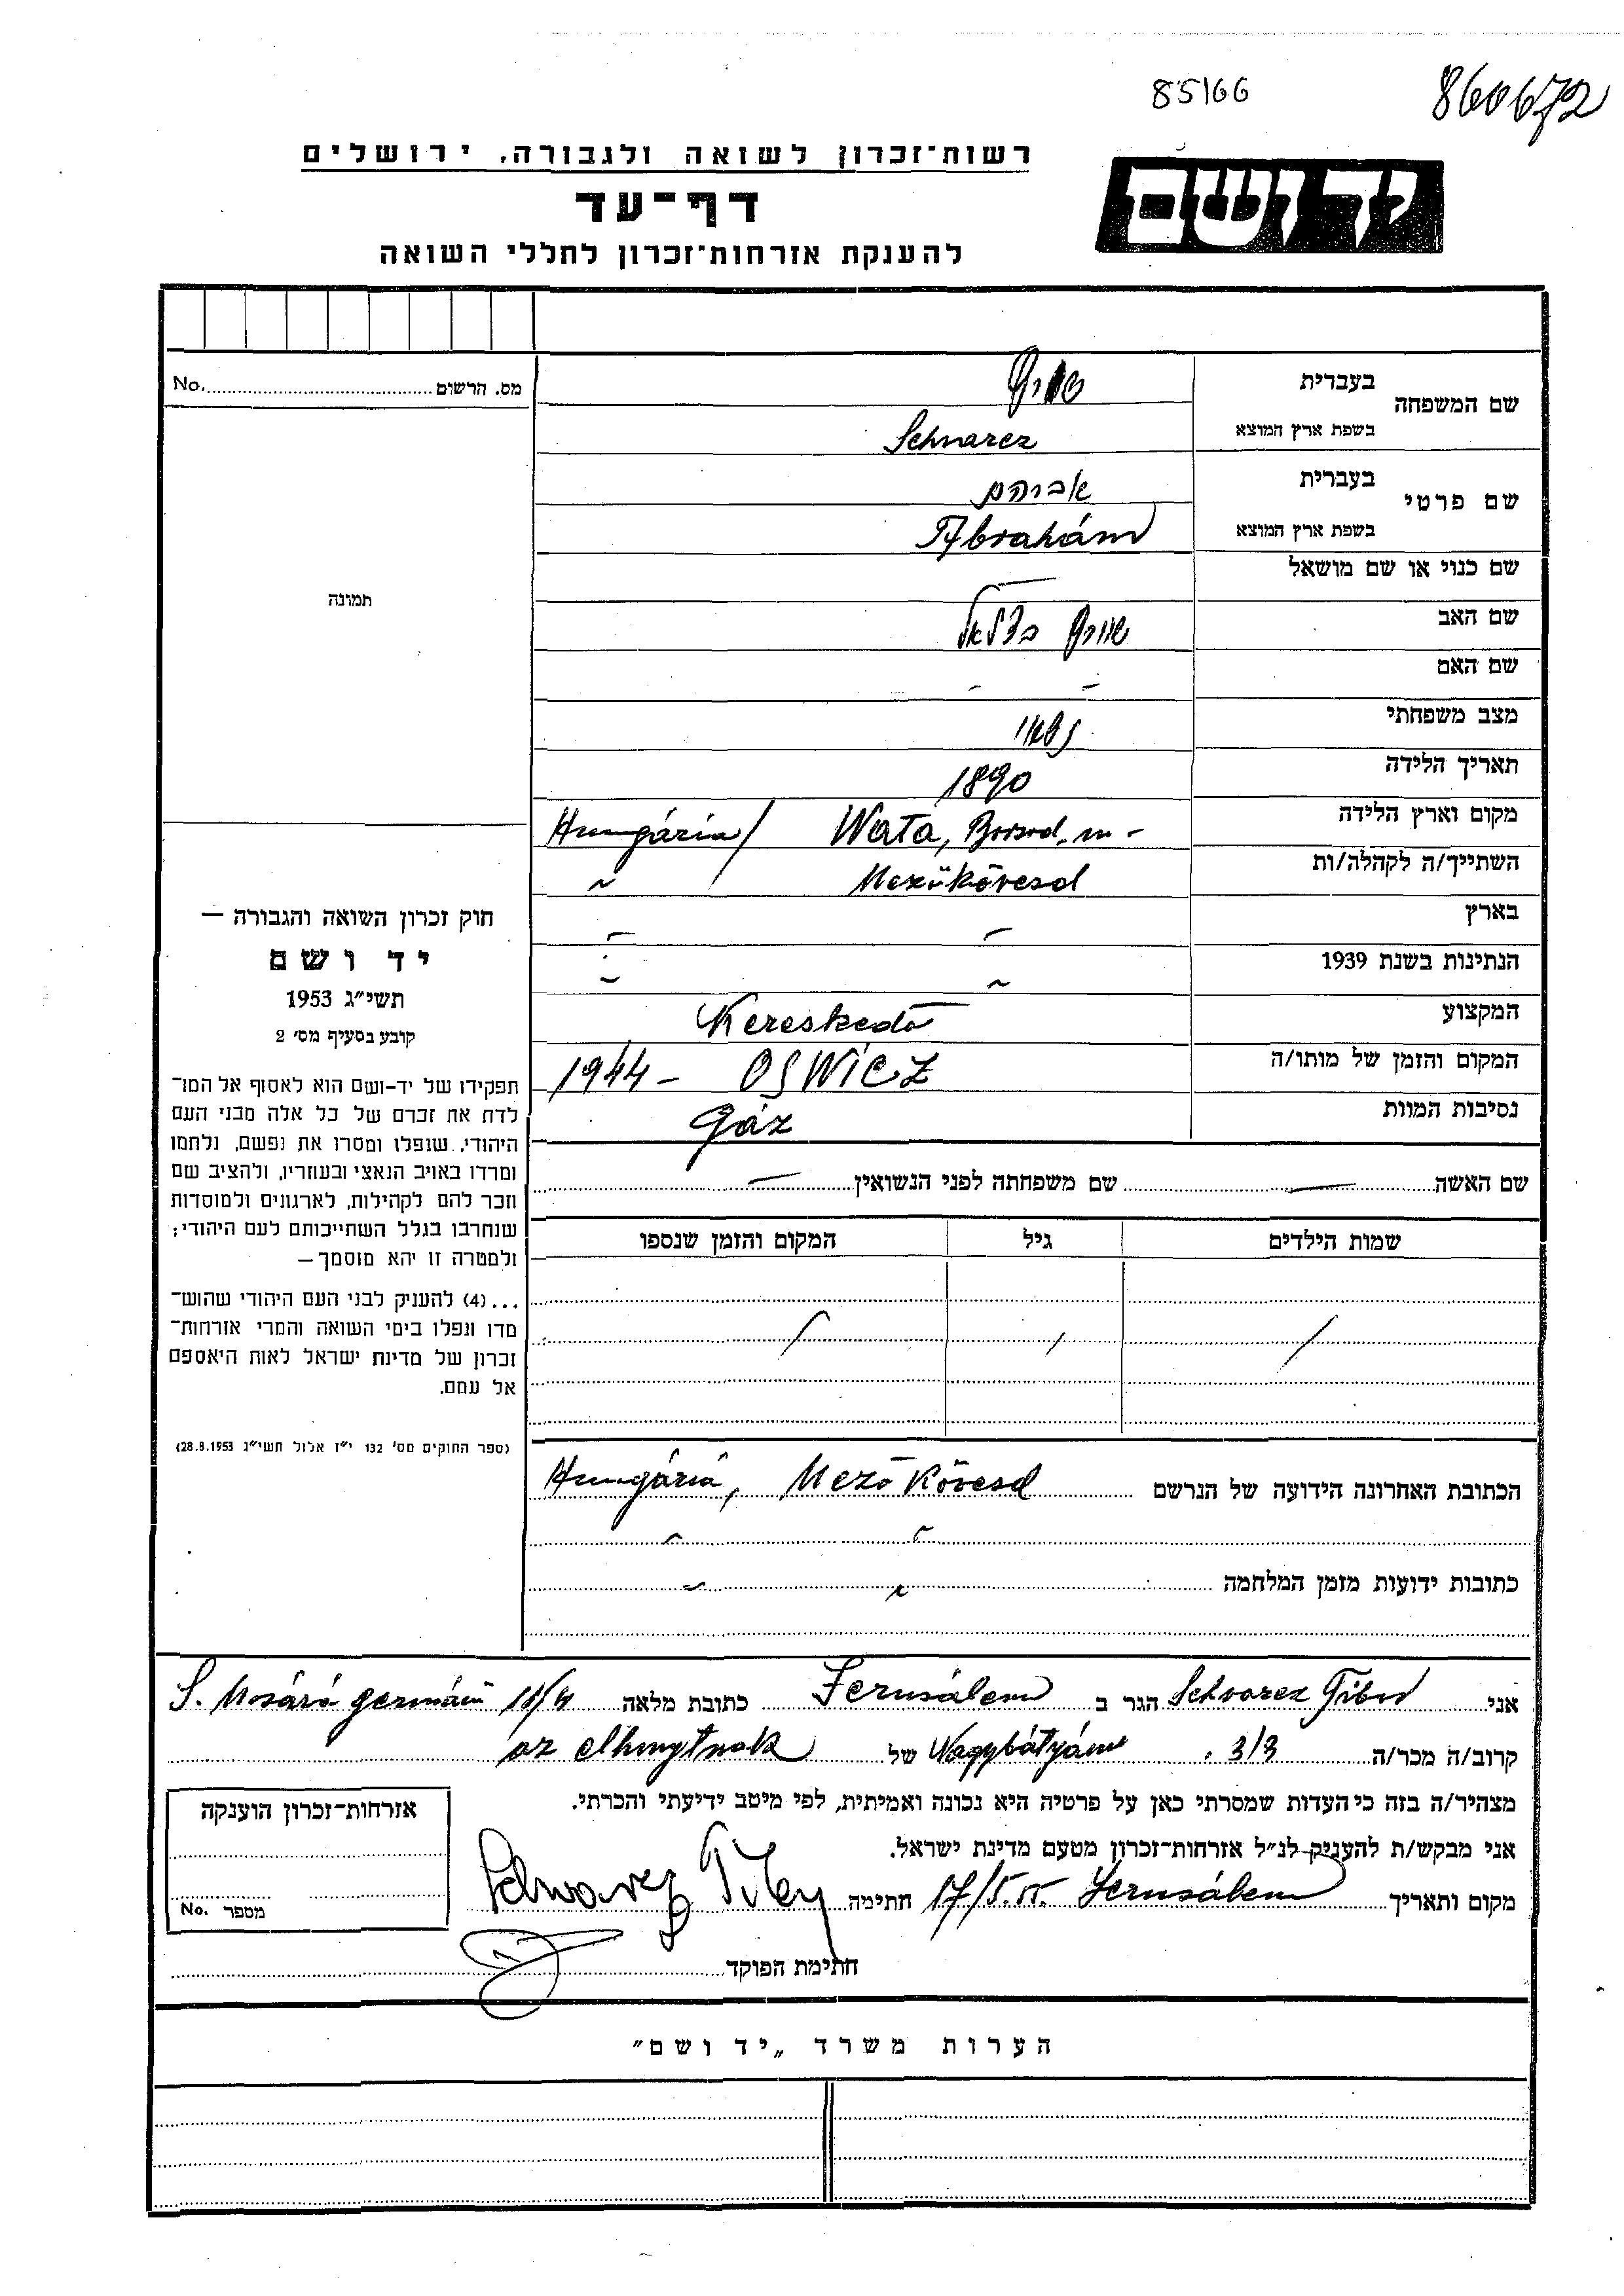 85166
860672
רשות־זכרון לשואה ולגבורה, ירושלים
יד ושם
דף־עד
להענקת אזרחות־זכרון לחללי השואה
מס. הרשום No.
שם המשפחה
בעברית
בשפת ארץ המוצא Schwarcz
שם פרטי
בעברית אברהם
בשפת ארץ המוצא Abrahám
שם כנוי או שם מושאל
שם האב שורץ בצלאל
שם האם - -
מצב משפחתי נשוי
תאריך הלידה 1890
מקום וארץ הלידה Wata, Borsod. m - Hungária/
השתייך/ה לקהלה/ות Mezőkövesd ~
בארץ
הנתינות בשנת 1939
המקצוע Kereskedő
המקום והזמן של מותו/ה 1944 - OSWICZ
נסיבות המוות Gáz
תמונה
חוק זכרון השואה והגבורה —
יד ושם
תשי״ג 1953
קובע בסעיף מס׳ 2
תפקידו של יד-ושם הוא לאסוף אל המו־
לדת את זכרם של כל אלה מבני העם
היהודי, שנפלו ומסרו את נפשם, נלחמו
ומרדו באויב הנאצי ובעוזריו, ולהציב שם
וזכר להם לקהילות, לארגונים ולמוסדות
שנחרבו בגלל השתייכותם לעם היהודי;
ולמטרה זו יהא מוסמך —
...(4) להעניק לבני העם היהודי שהוש־
מדו ונפלו בימי השואה והמרי אזרחות־
זכרון של מדינת ישראל לאות היאספם
אל עמם.
(ספר החוקים מס׳ 132 י״ז אלול תשי״ג 28.8.1953)
שם האשה שם משפחתה לפני הנשואין
שמות הילדים גיל המקום והזמן שנספו
הכתובת האחרונה הידועה של הנרשם Hungária, Mezőkövesd
כתובות ידועות מזמן המלחמה
אני Schvarcz Tibor הגר ב Jerusálem כתובת מלאה S. Mosárá germáni 11/4
קרוב/ה מכר/ה 3/3 Nagybátyám של az elhunytnak
מצהיר/ה בזה כי העדות שמסרתי כאן על פרטיה היא נכונה ואמיתית, לפי מיטב ידיעתי והכרתי.
אני מבקש/ת להעניק לנ״ל אזרחות־זכרון מטעם מדינת ישראל.
מקום ותאריך Jerusálem 17/5.55. חתימה Schwarcz
חתימת הפוקד
אזרחות־זכרון הוענקה
מספר No.
הערות משרד „יד ושם״